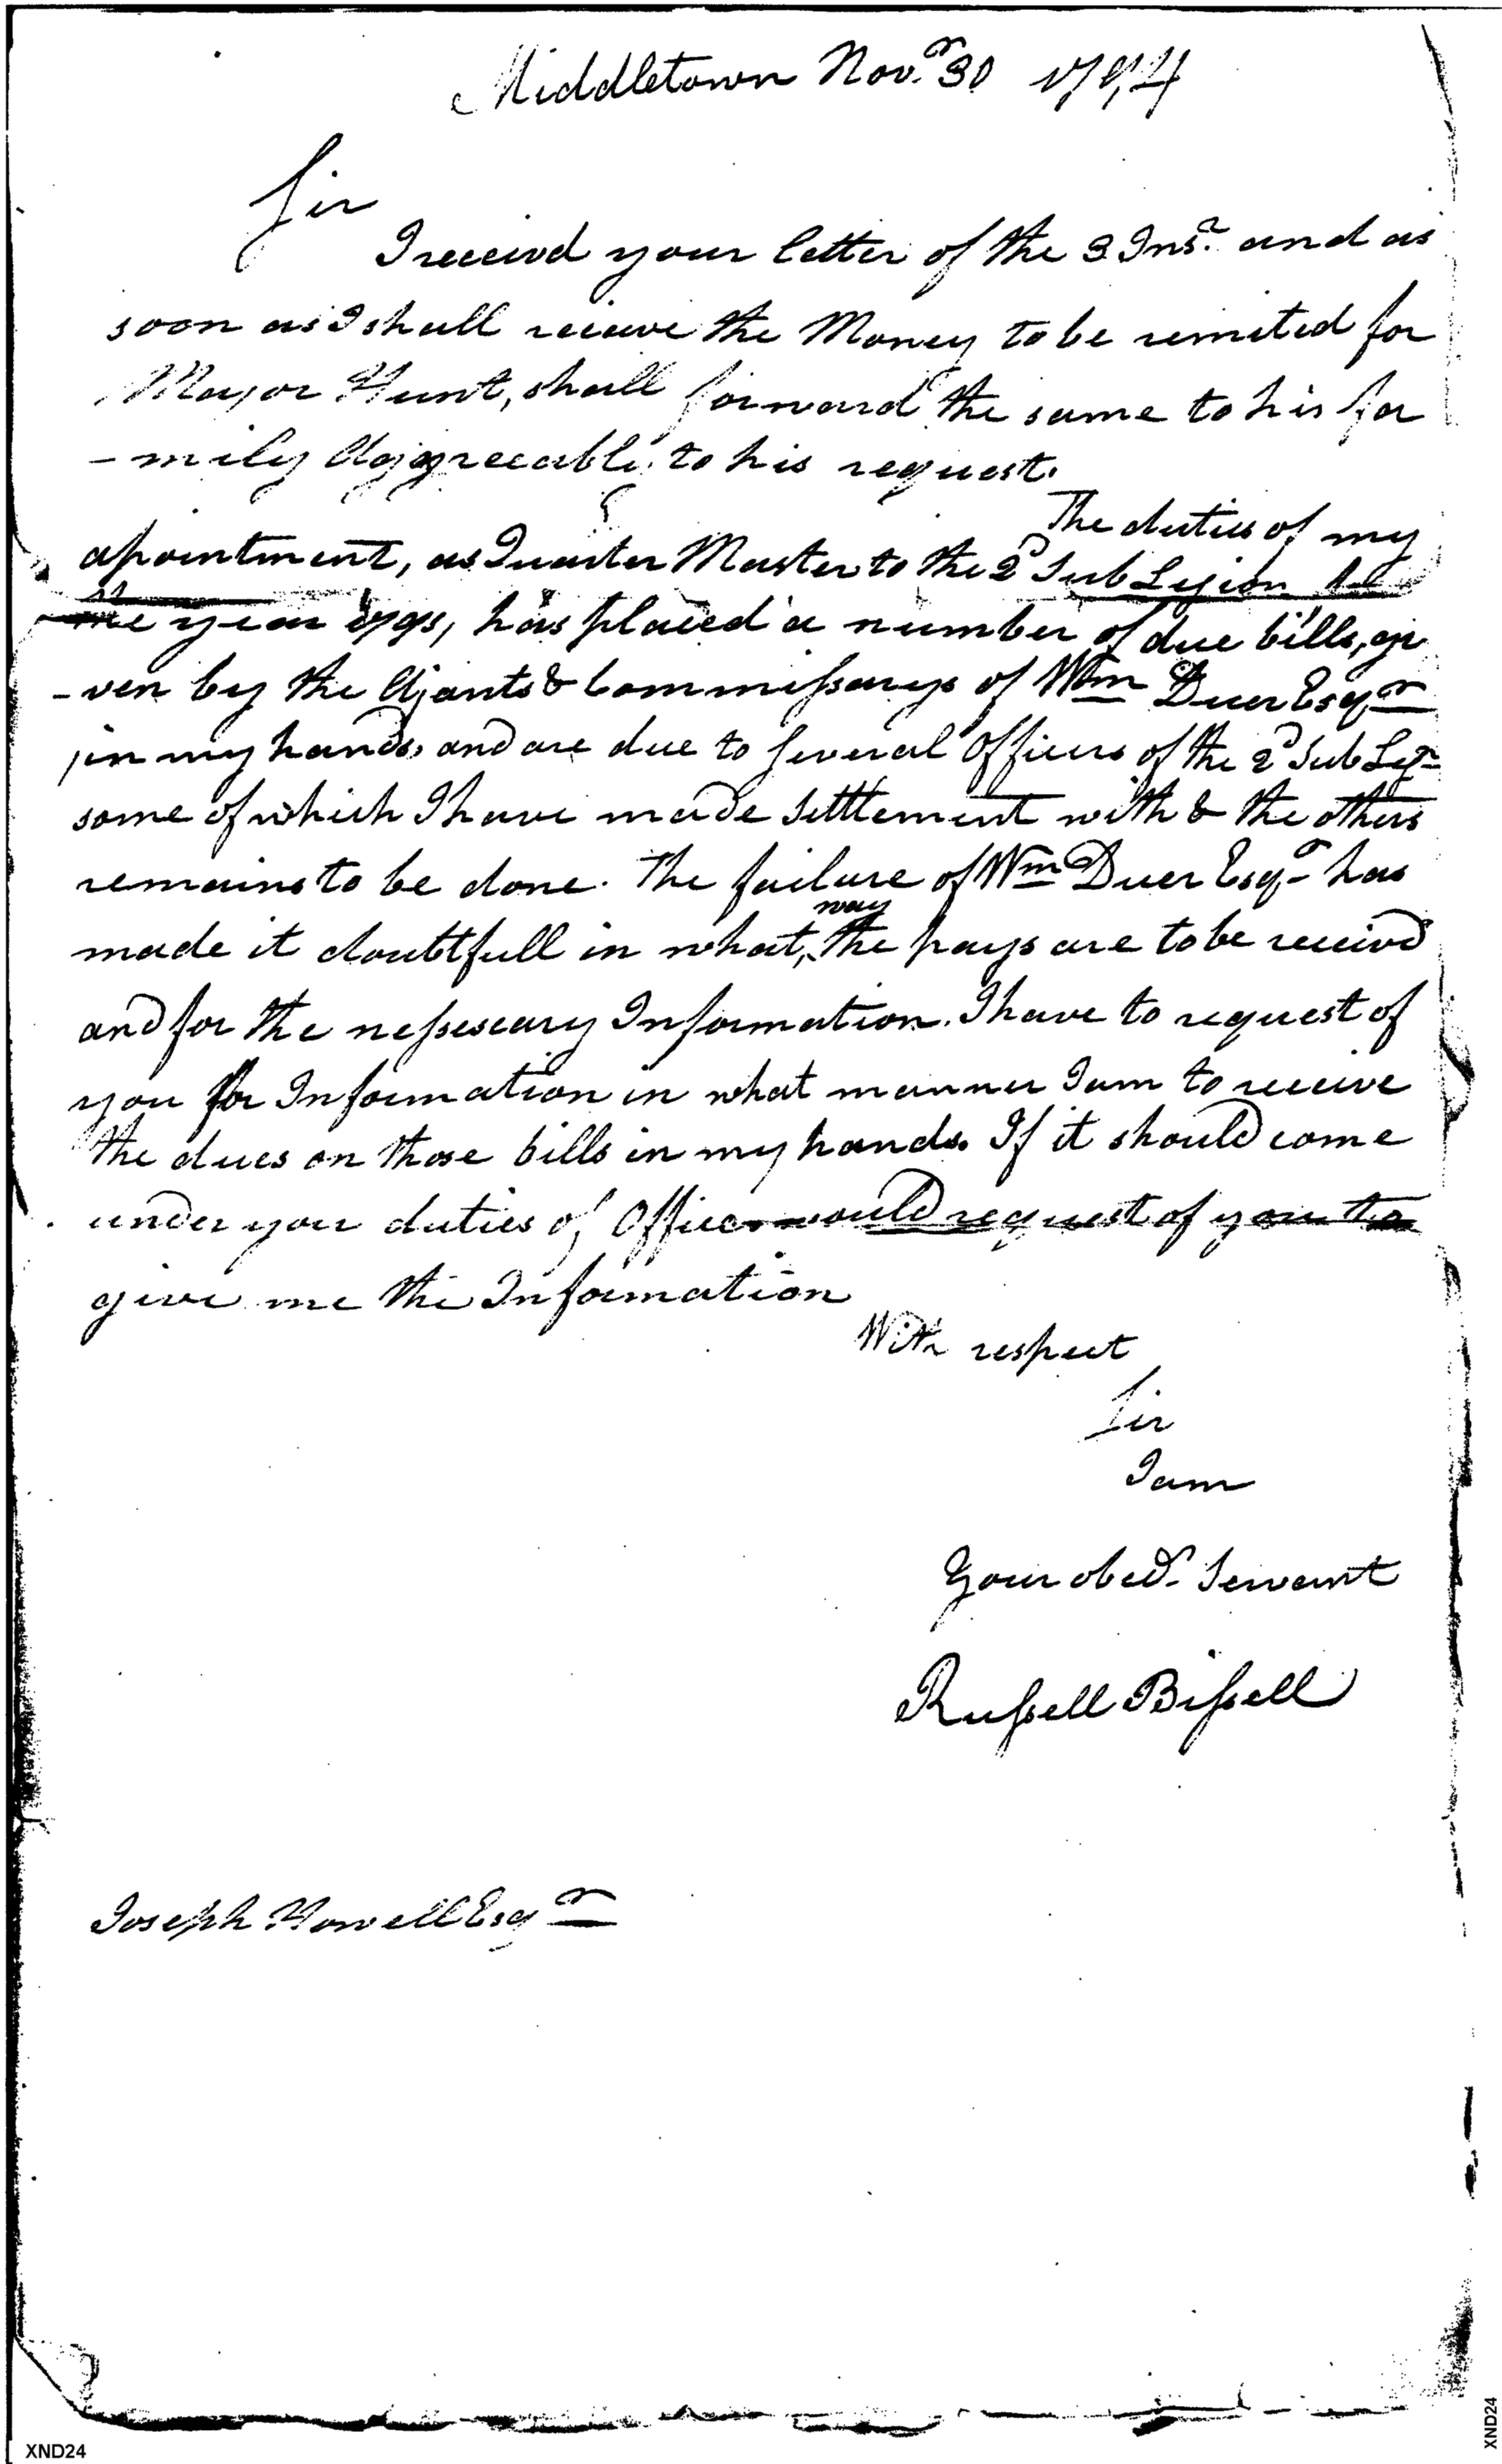 Middletown Novr. 30 1794
Sir
I receivd your letter of the 3 Inst. and as
soon as I shall receive the Money to be remited for
Major Hunt, shall forward the same to his fa
-mily Aggreeable to his request.
The duties of my
apointment, as Quarter Master to the 2d Sub Legion
the year 1791, has placed a number of due bills, gi
-ven by the Ajants & Commissarys of Wm Duer Esqr
in my hands, and are due to several Officers of the 2d Sub Legn
some of which I have made settlement with & the others
remains to be done. The failure of Wm Duer Esqr has
way
made it doubtfull in what, the pays are to be receivd
and for the nessescary Information. I have to request of
you for Information in what manner I am to receive
the dues on those bills in my hands. If it should come
under your duties of Office would request of you to
give me the Information
With respect
Sir
I am
Your obedt Servant
Russell Bissell
Joseph Howell Esqr
XND24
XND24